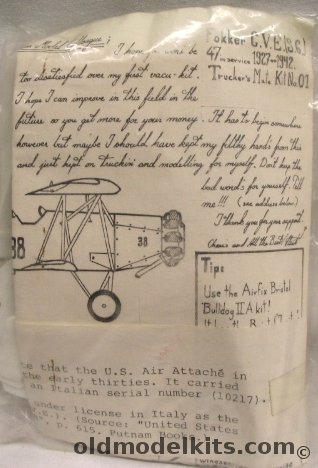 I hope
too dissatisfied over my first vacu-kit.
I hope I can improve in this field in the
future so you get more for your money. It has to begin somewhere
however but maybe I should have kept my filthy hands from this
and just kept on truckin and modelling for myself. Don't keep the
bad words for yourself. Tell
me!!! (see address below)
I thank you for your support.
Cheers and All the Best
Fokker C.V.E (S.6)
47 in service 1927-1942.
Trucker's Kit No. 01
38
38
Tips
Use the Airfix Bristol
Bulldog II A kit!
te that the U.S. Air Attaché in
the early thirties. It carried
an Italian serial number (10217).
under license in Italy as the
(Source: "United States
p. 615. Putnam Books
oldmodelkits.com